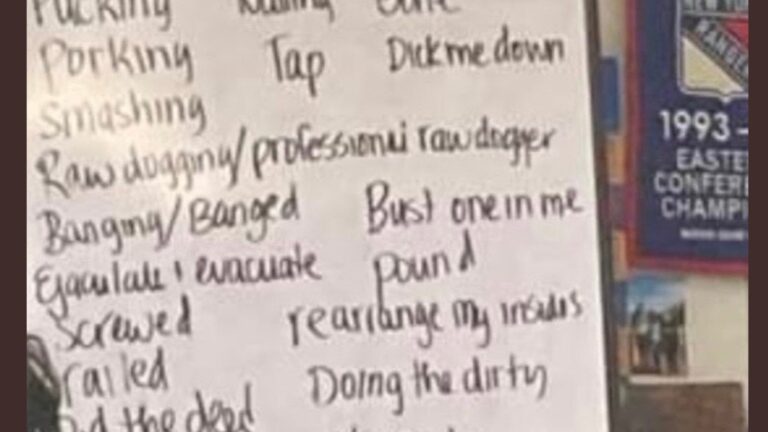 Fucking
Porking Tap Dick me down
Smashing
Raw dogging/professional raw dogger
Banging/Banged Bust one in me
Ejaculate & evacuate pound
Screwed rearrange my insides
railed Doing the dirty
the deed
NEW YORK
RANGERS
1993-
EASTE
CONFERE
CHAMPI